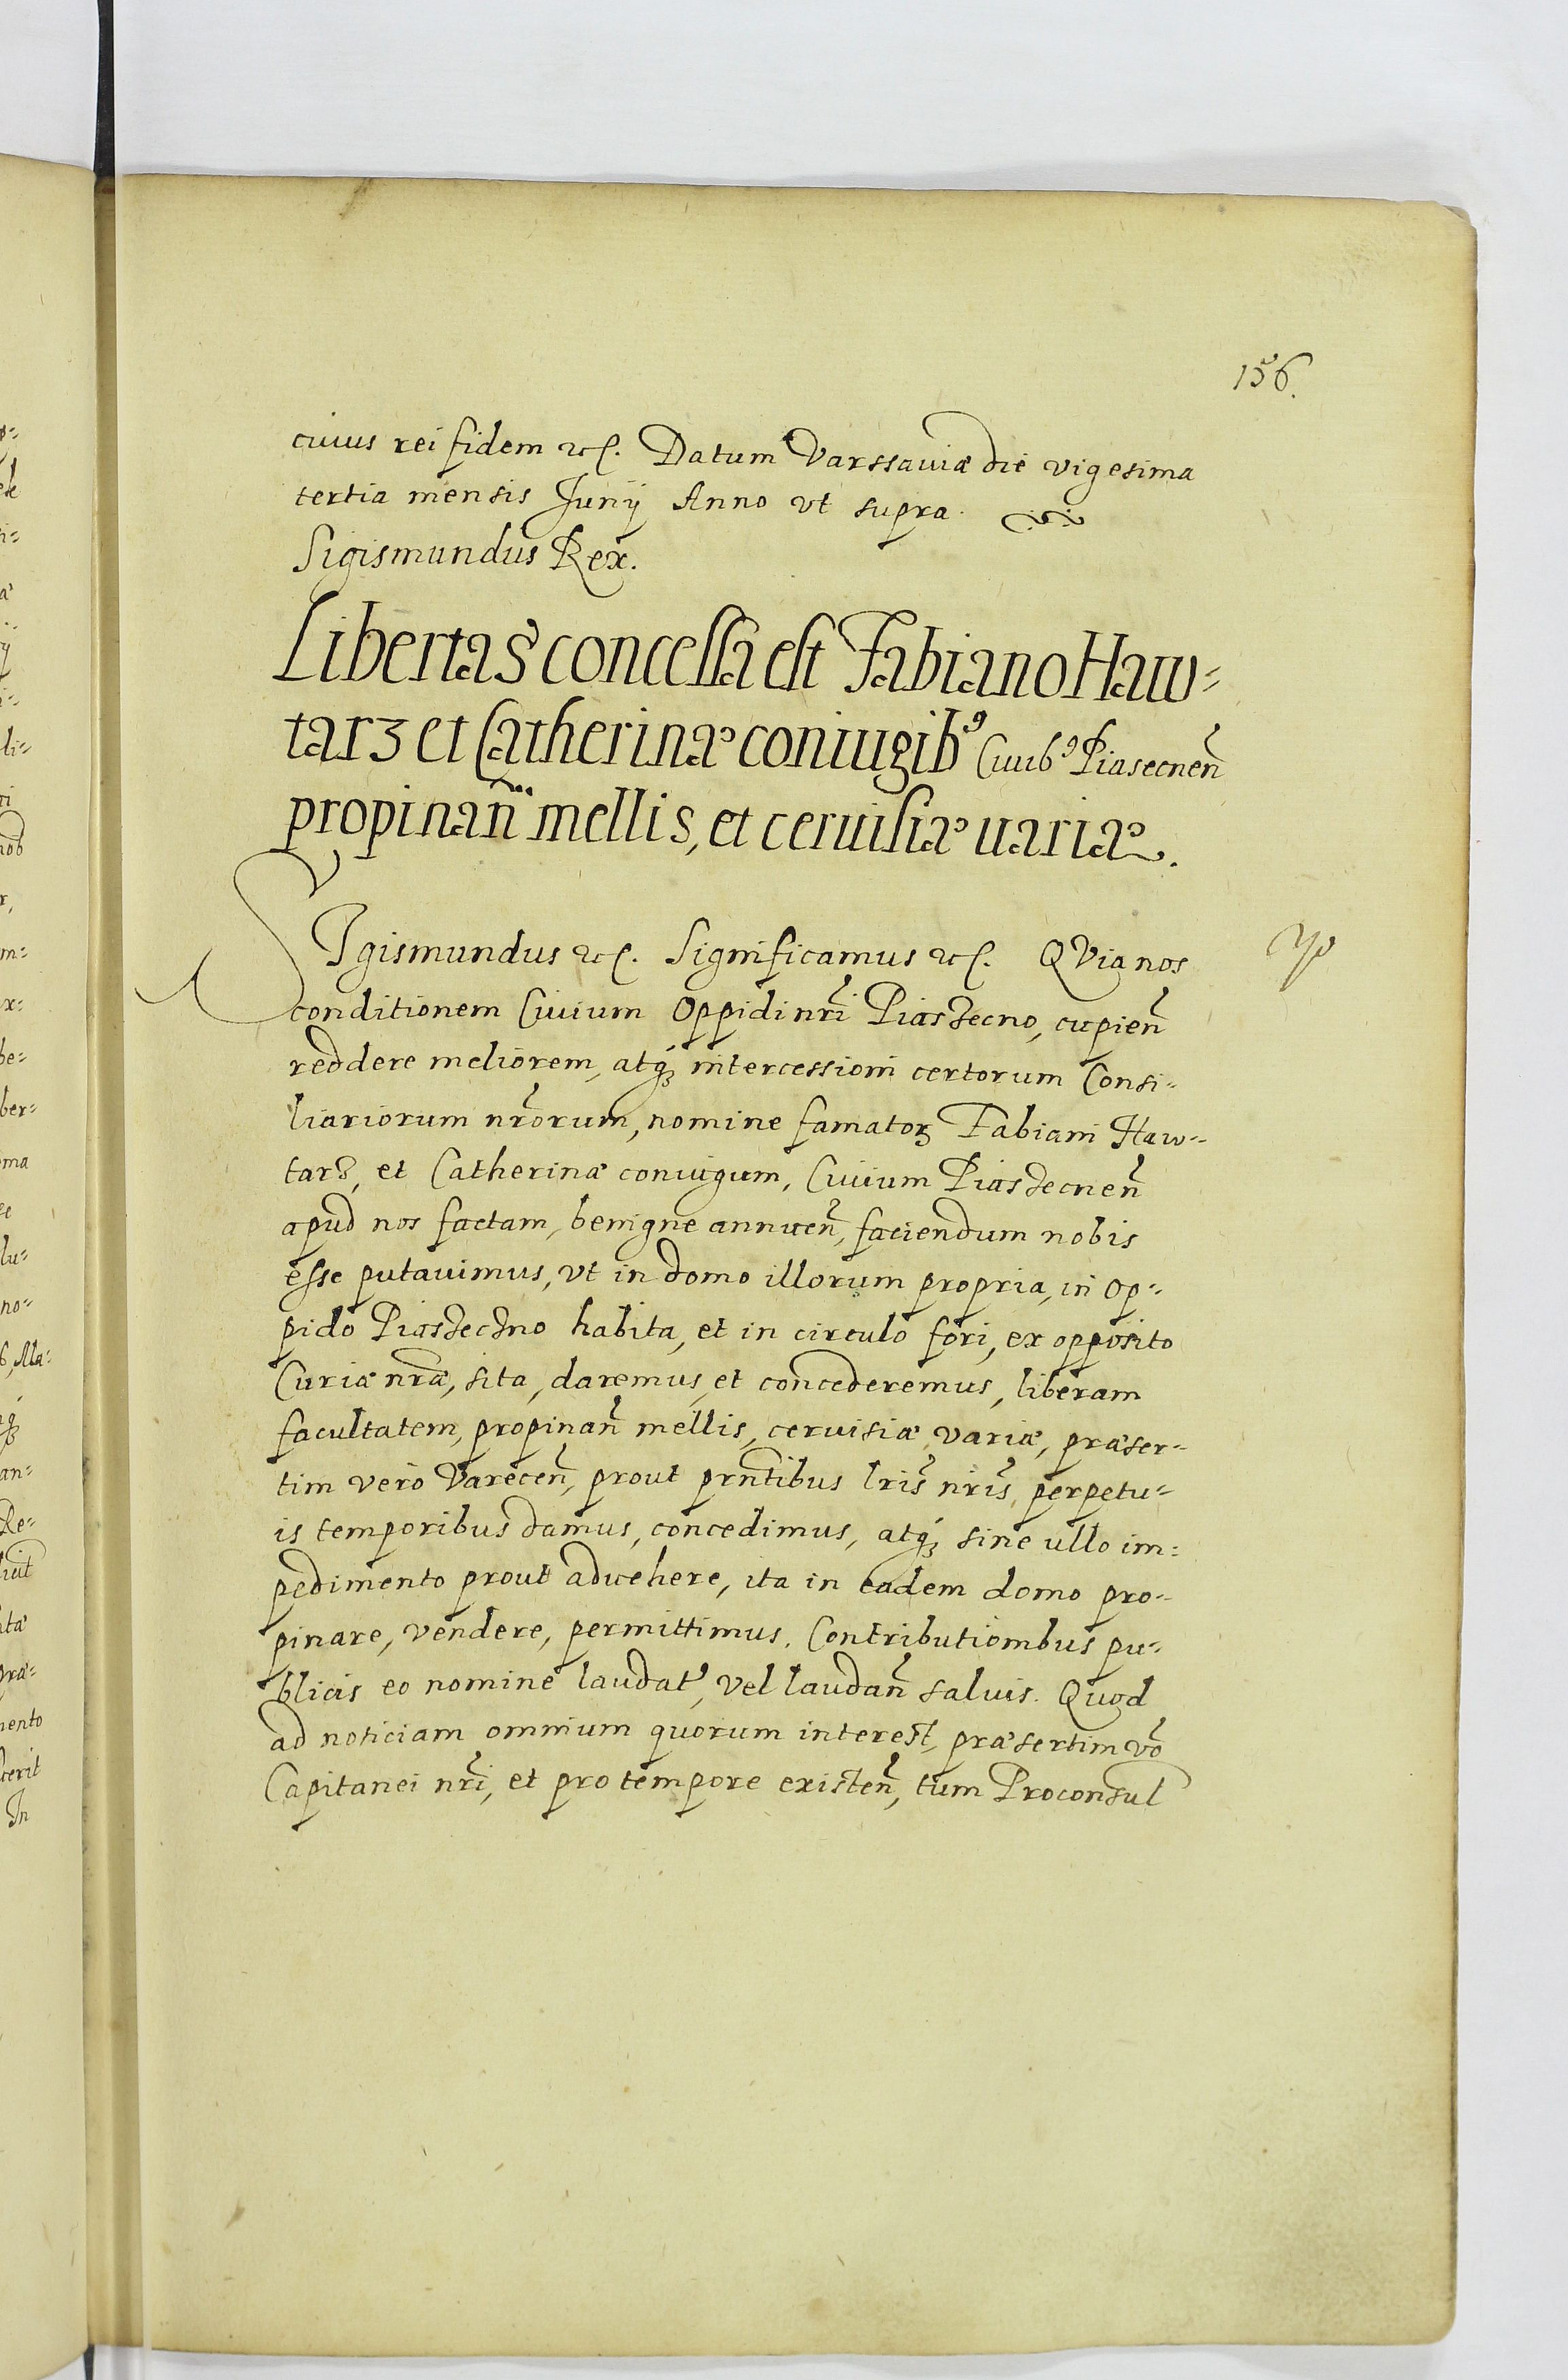 156.
cuius rei fidem etc. Datum Varssauiæ die vigesima
tertia mensis Junij Anno vt supra.
Sigismundus Rex.
Libertas concessa est Fabiano Haw-
tarz et Catherinæ coniugib⁹ Ciuib⁹ Piasecnen̄
propinan̄ mellis, et ceruisiæ uariæ.
SIgismundus etc. Significamus etc. QVia nos
conditionem Ciuium Oppidi nr̄i Piaszecno, cupien̄
reddere meliorem, atq́ꝫ intercessioni certorum Consi-
liariorum nr̄orum, nomine famatoꝝ Fabiani Haw-
tarz, et Catherinæ coniugum, Ciuium Piaszecnen̄
apud nos factam, benigne annuen̄, faciendum nobis
esse putauimus, vt in domo illorum propria, in Op-
pido Piaszeczno habita, et in circulo fori, ex opposito
Curiæ nr̄æ, sita, daremus, et concederemus, liberam
facultatem, propinan̄ mellis, ceruisiæ variæ, præser-
tim vero Varecen̄, prout prn̄tibus lr̄is nr̄is, perpetu-
is temporibus damus, concedimus, atq́ꝫ sine ullo im-
pedimento prout aduehere, ita in eadem domo pro-
pinare, vendere, permittimus. Contributionibus pu-
blicis eo nomine laudat', vel laudan̄ saluis. Quod
ad noticiam omnium quorum interest, præsertim vō
Capitanei nr̄i, et pro tempore existen̄, tum Proconsul